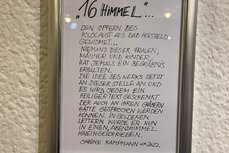 „16 HIMMEL"...
DEN OPFERN DES
HOLOCAUST AUS BAD HERSFELD
GEWIDMET...
NIEMAND DIESER FRAUEN,
MÄNNER UND KINDER
HAT JEMALS EIN BEGRÄBNIS
ERHALTEN.
DIE IDEE DES WERKS SETZT
AN DIESER STELLE AN UND
ES WIRD JEDEM EIN
HEILIGER TEXT GESCHENKT
DER AUCH AN IHREN GRÄBERN
HÄTTE GESPROCHEN WERDEN
KÖNNEN. IN GOLDENEN
LETTERN WURDE ER NUN
IN EINEN ABENDHIMMEL
HINEINGESCHRIEBEN.
SABINE KAMPMANN 2022